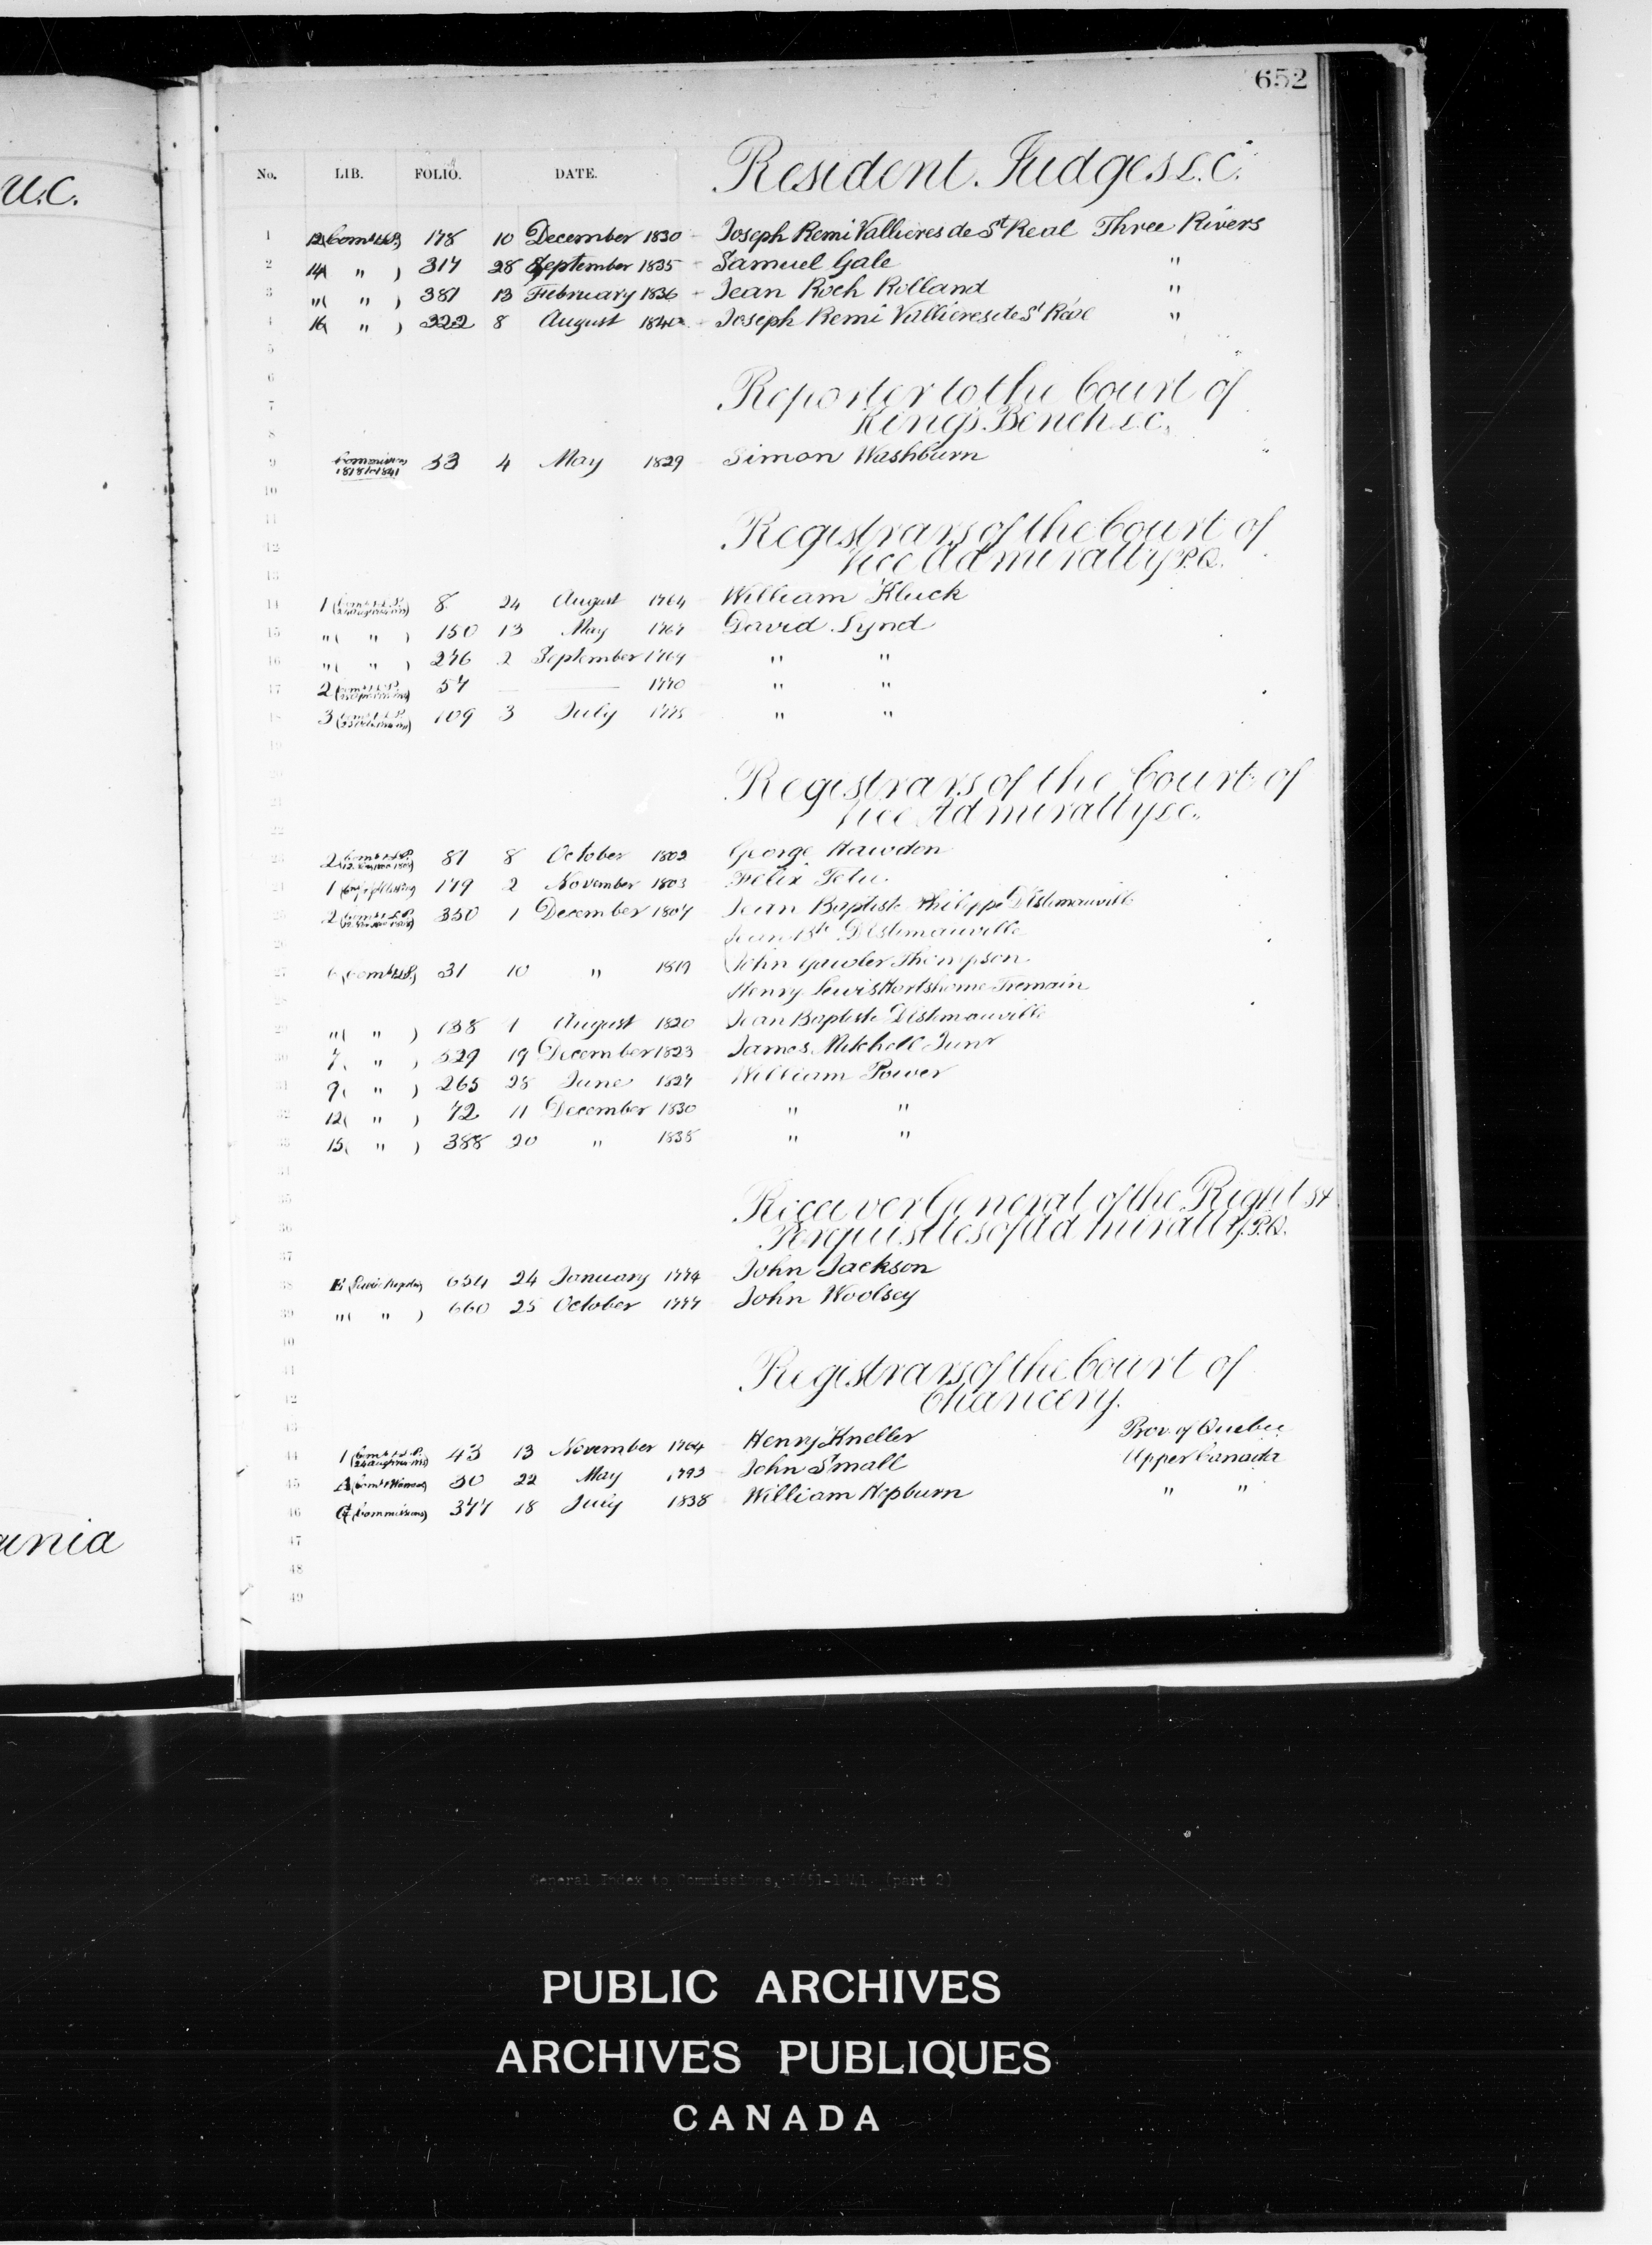 652
U.C.
No. LIB. FOLIO. DATE. Resident Judges L.C.
1 12(Coms L.P.) 178 10 December 1830 Joseph Remi Vallieres de St Real Three Rivers
2 14( " ) 317 28 September 1835 Samuel Gale "
3 "( " ) 381 13 February 1836 Jean Roch Rolland "
4 16( " ) 222 8 August 1840 Joseph Remi Vallieres de St Réal "
5
6 Reporter to the Court of
7 Kings Bench L.C.
8
9 Commissions 53 4 May 1829 Simon Washburn
1818 to 1841
10
11 Registrars of the Court of
12 Vice Admiralty P.Q.
13
14 1 8 24 August 1764 William Kluck
15 "( " ) 150 13 May 1767 David Lynd
16 "( " ) 276 2 September 1769 " "
17 2 57 — — 1770 " "
18 3 109 3 July 1775 " "
19
20 Registrars of the Court of
21 Vice Admiralty L.C.
22
23 2 87 8 October 1802 George Hawdon
24 1 179 2 November 1803 Felix Tetu
25 2 350 1 December 1807 Jean Baptiste Philippe D'Estimauville
26 Jean Bte D'Estimauville
27 6 (Coms L.P.) 31 10 " 1819 John Gawler Thompson
28 Henry Lewis Hortshorne Tremain
29 "( " ) 138 1 August 1820 Jean Baptiste D'Estimauville
30 7( " ) 529 19 December 1823 James Mitchell Junr
31 9( " ) 265 28 June 1827 William Power
32 12( " ) 72 11 December 1830 " "
33 15( " ) 388 20 " 1838 " "
34
35 Receiver General of the Rights &
36 Perquisites of Admiralty. P.Q.
37
38 E 654 24 January 1774 John Jackson
39 "( " ) 660 25 October 1777 John Woolsey
40
41 Registrars of the Court of
42 Chancery.
43
44 1 43 13 November 1764 Henry Kneller Prov. of Quebec
45 A 30 22 May 1793 John Small Upper Canada
46 G (Commissions) 377 18 July 1838 William Hepburn " "
47
48
49
General Index to Commissions, 1651-1841. (part 2)
PUBLIC ARCHIVES
ARCHIVES PUBLIQUES
CANADA